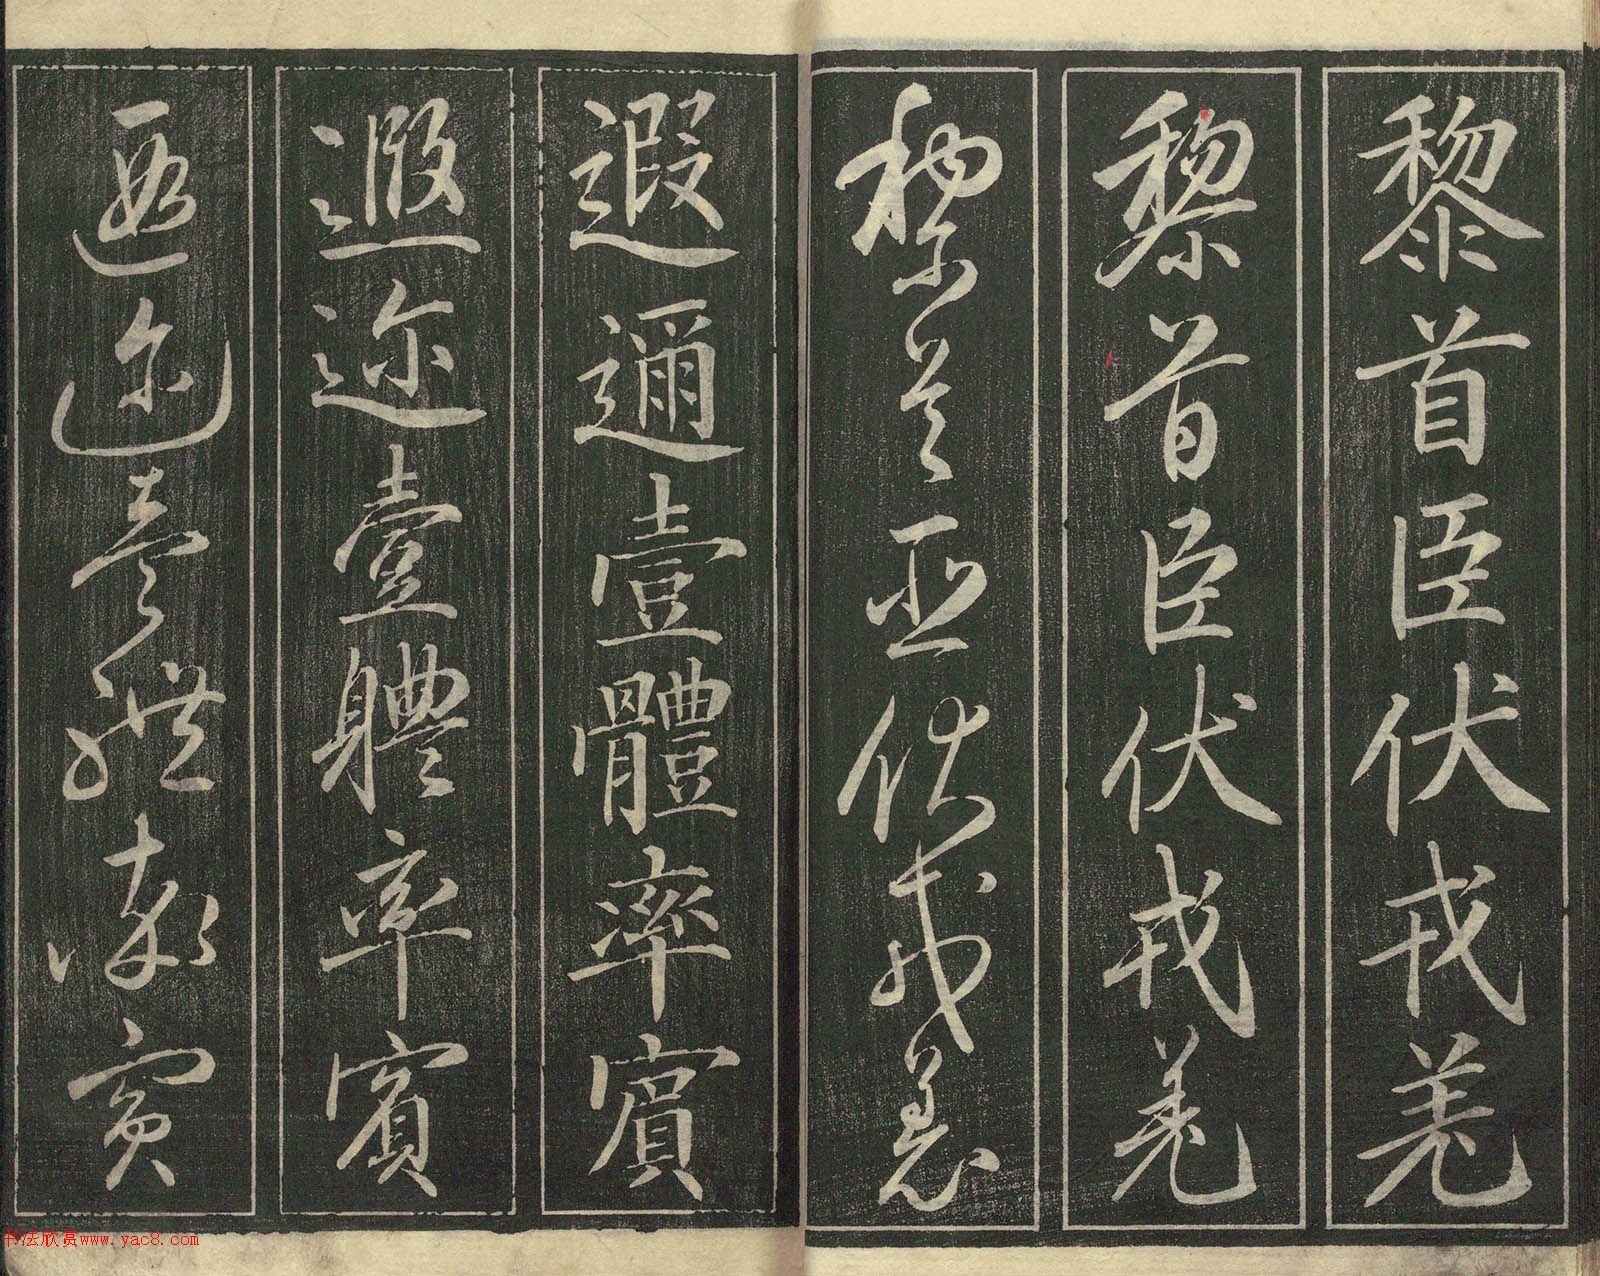 黎首臣伏戎羌
黎首臣伏戎羌
黎首臣伏戎羌
遐邇壹體率賓
遐迩壹體率賓
遐迩壹體率賓
书法欣赏www.yac8.com